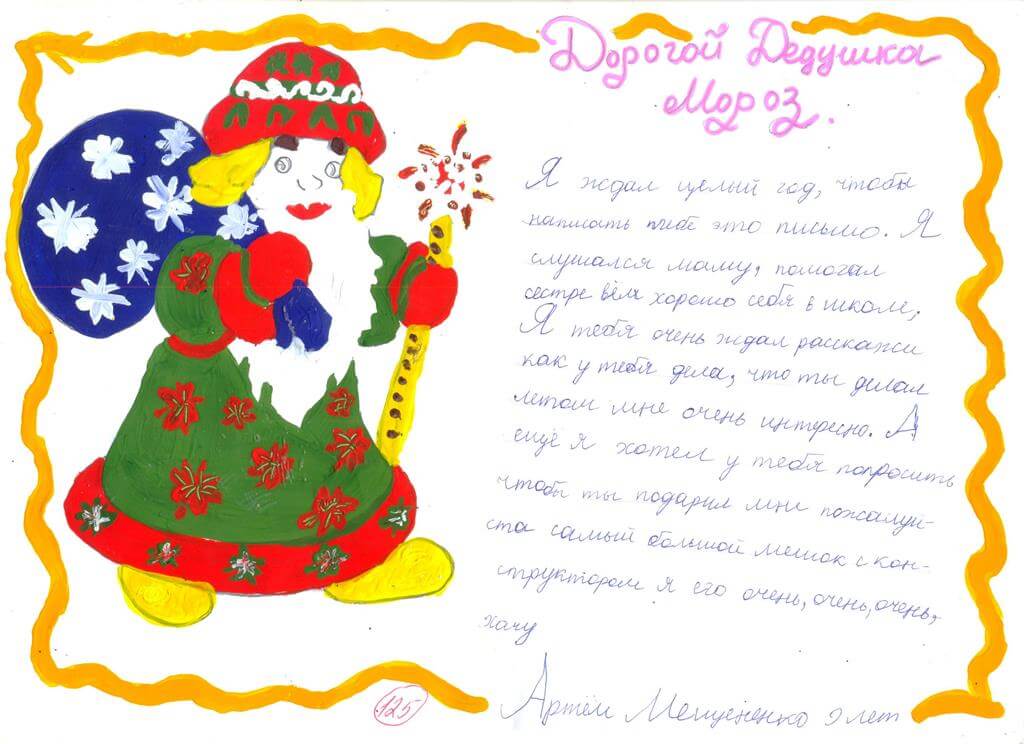 Дорогой Дедушка
Мороз.
Я ждал целый год, чтобы
написать тебе это письмо. Я
слушался маму, помогал
сестре вёл хорошо себя в школе,
Я тебя очень ждал расскажи
как у тебя дела, что ты делал
летом мне очень интресно. А
ещё я хотел у тебя попросить
чтобы ты подарил мне пожалуй-
ста самый большой мешок с кон-
структором я его очень, очень, очень,
хочу
Артём 9 лет
125